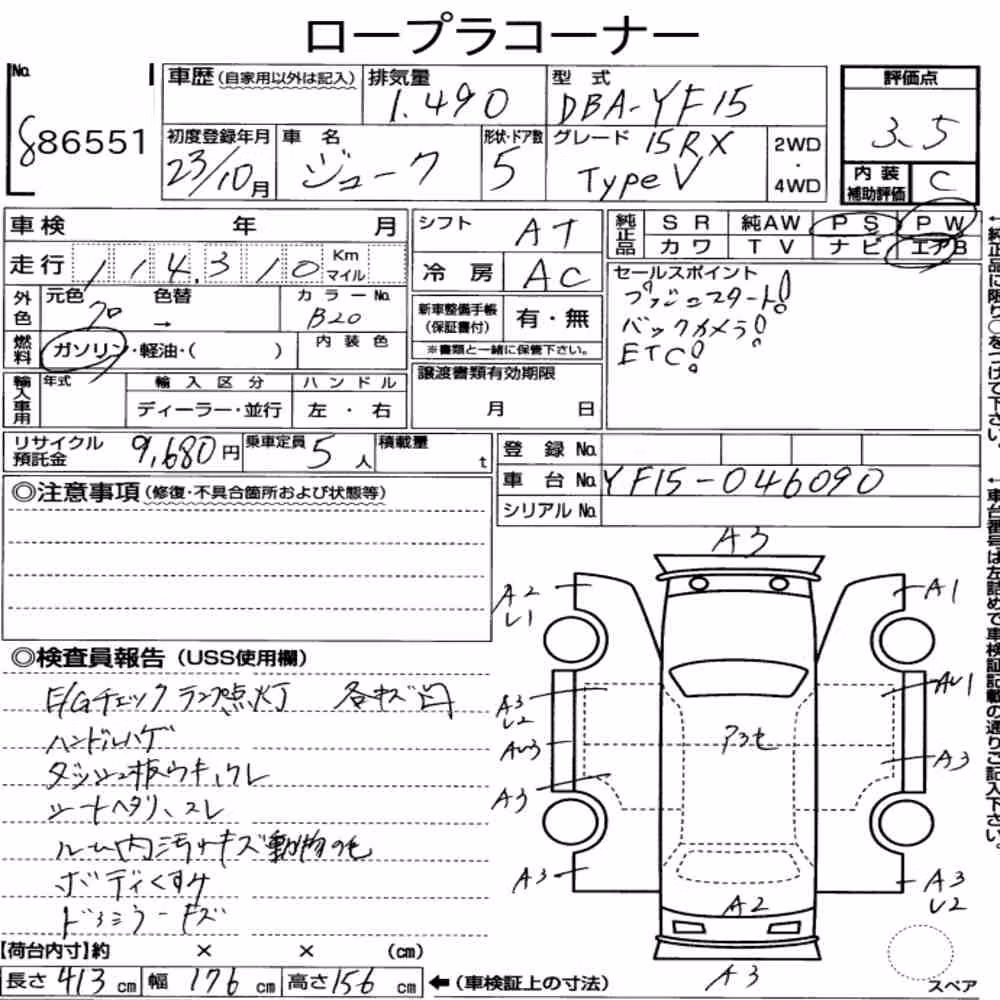 ロープラコーナー
No.
86551
車歴(自家用以外は記入)
排気量
1.490
型式
DBA-YF15
評価点
3.5
初度登録年月
23/10月
車名
ジューク
形状・ドア数
5
グレード 15RX
Type V
2WD
・
4WD
内装
補助評価
C
車検 年 月
シフト AT
純正品
SR 純AW PS PW
カワ TV ナビ エアB
走行 114,310 Km
マイル
冷房 AC
セールスポイント
プッシュスタート!
バックカメラ!
ETC!
外色
元色 色替
→
カラーNo.
B20
新車整備手帳
(保証書付)
有・無
※書類と一緒に保管下さい。
燃料
ガソリン・軽油・( )
内装色
輸入車用
年式
輸入区分
ハンドル
ディーラー・並行
左・右
譲渡書類有効期限
月 日
←純正品に限り○をつけて下さい。
リサイクル
預託金
9,680円
乗車定員
5人
積載量
t
登録No.
車台No. YF15-046090
シリアルNo.
←車台番号は左詰めで車検証記載の通りご記入下さい。
◎注意事項(修復・不具合箇所および状態等)
◎検査員報告(USS使用欄)
E/Gチェックランプ点灯 各キズ凹
ハンドルハゲ
ダッシュ板ウキ、クレ
シートヘタリ、スレ
ルーム内汚れキズ動物の毛
ボディくすみ
ドアミラーキズ
A3
A2
L1
A1
A3
A3
A3
A3
A2
A3
A3
スペア
【荷台内寸】約 × × (cm)
長さ413cm 幅176cm 高さ156cm ←(車検証上の寸法)